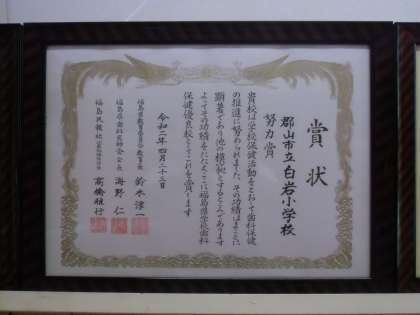 賞状
郡山市立白岩小学校
努力賞
貴校は学校保健活動をとおして歯科保健
の推進に努められました その功績はまことに
顕著であり他の模範とするところであります
よってその功績をたたえここに福島県学校歯科
保健優良校としてこれを賞します
令和二年四月二十三日
福島県教育委員会教育長 鈴木淳一
福島県歯科医師会会長 海野仁
福島民報社 高橋雅行